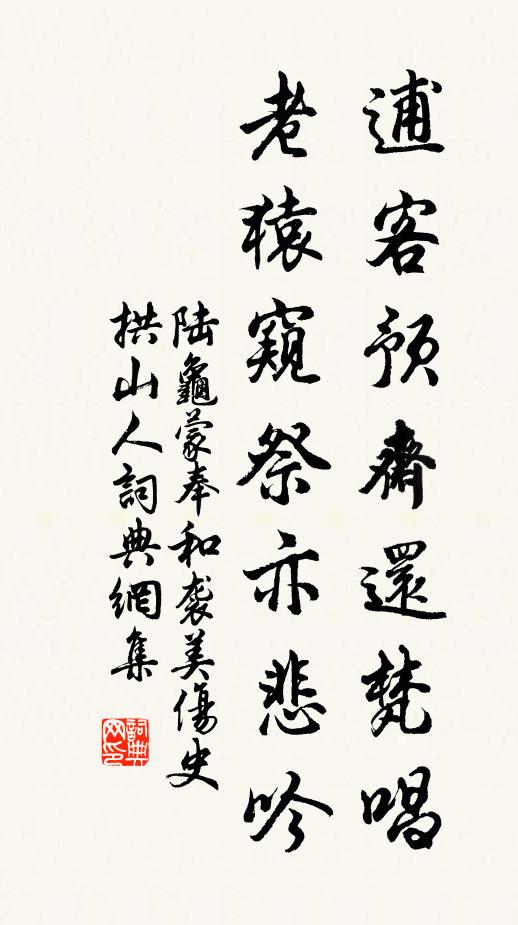 逋客預齋還梵唱
老猿窺祭亦悲吟
陸龜蒙奉和襲美傷史
拱山人詞典網集
詞典网印